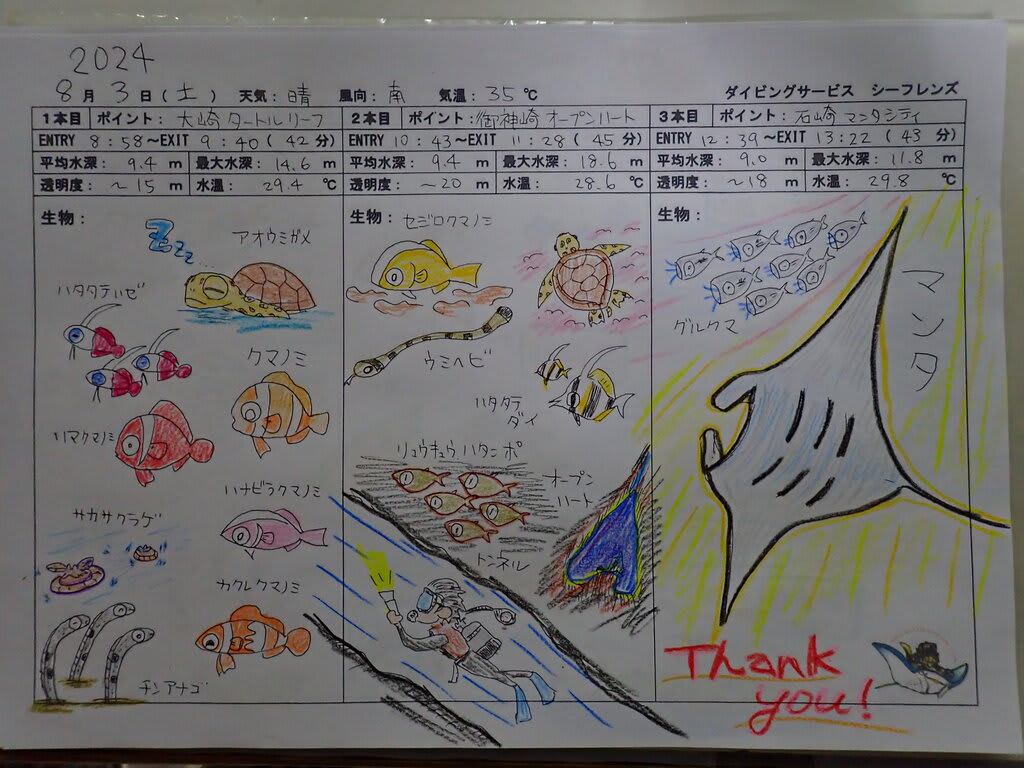 2024
8月 3日(土) 天気:晴 風向:南 気温:35℃ ダイビングサービス シーフレンズ
1本目 ポイント:大崎 タートルリーフ
ENTRY 8:58~EXIT 9:40(42分)
平均水深: 9.4 m 最大水深: 14.6 m
透明度: ~15 m 水温: 29.4 ℃
生物:
アオウミガメ
ハタタテハゼ
クマノミ
ハマクマノミ
ハナビラクマノミ
サカサクラゲ
カクレクマノミ
チンアナゴ
2本目 ポイント:御神崎 オープンハート
ENTRY 10:43~EXIT 11:28(45分)
平均水深: 9.4 m 最大水深: 18.6 m
透明度: ~20 m 水温: 28.6 ℃
生物:
セジロクマノミ
ウミヘビ
ハタタテ
ダイ
リュウキュウハタンポ
オープン
ハート
トンネル
3本目 ポイント:石崎 マンタシティ
ENTRY 12:39~EXIT 13:22(43分)
平均水深: 9.0 m 最大水深: 11.8 m
透明度: ~18 m 水温: 29.8 ℃
生物:
グルクマ
マンタ
Thank
you!